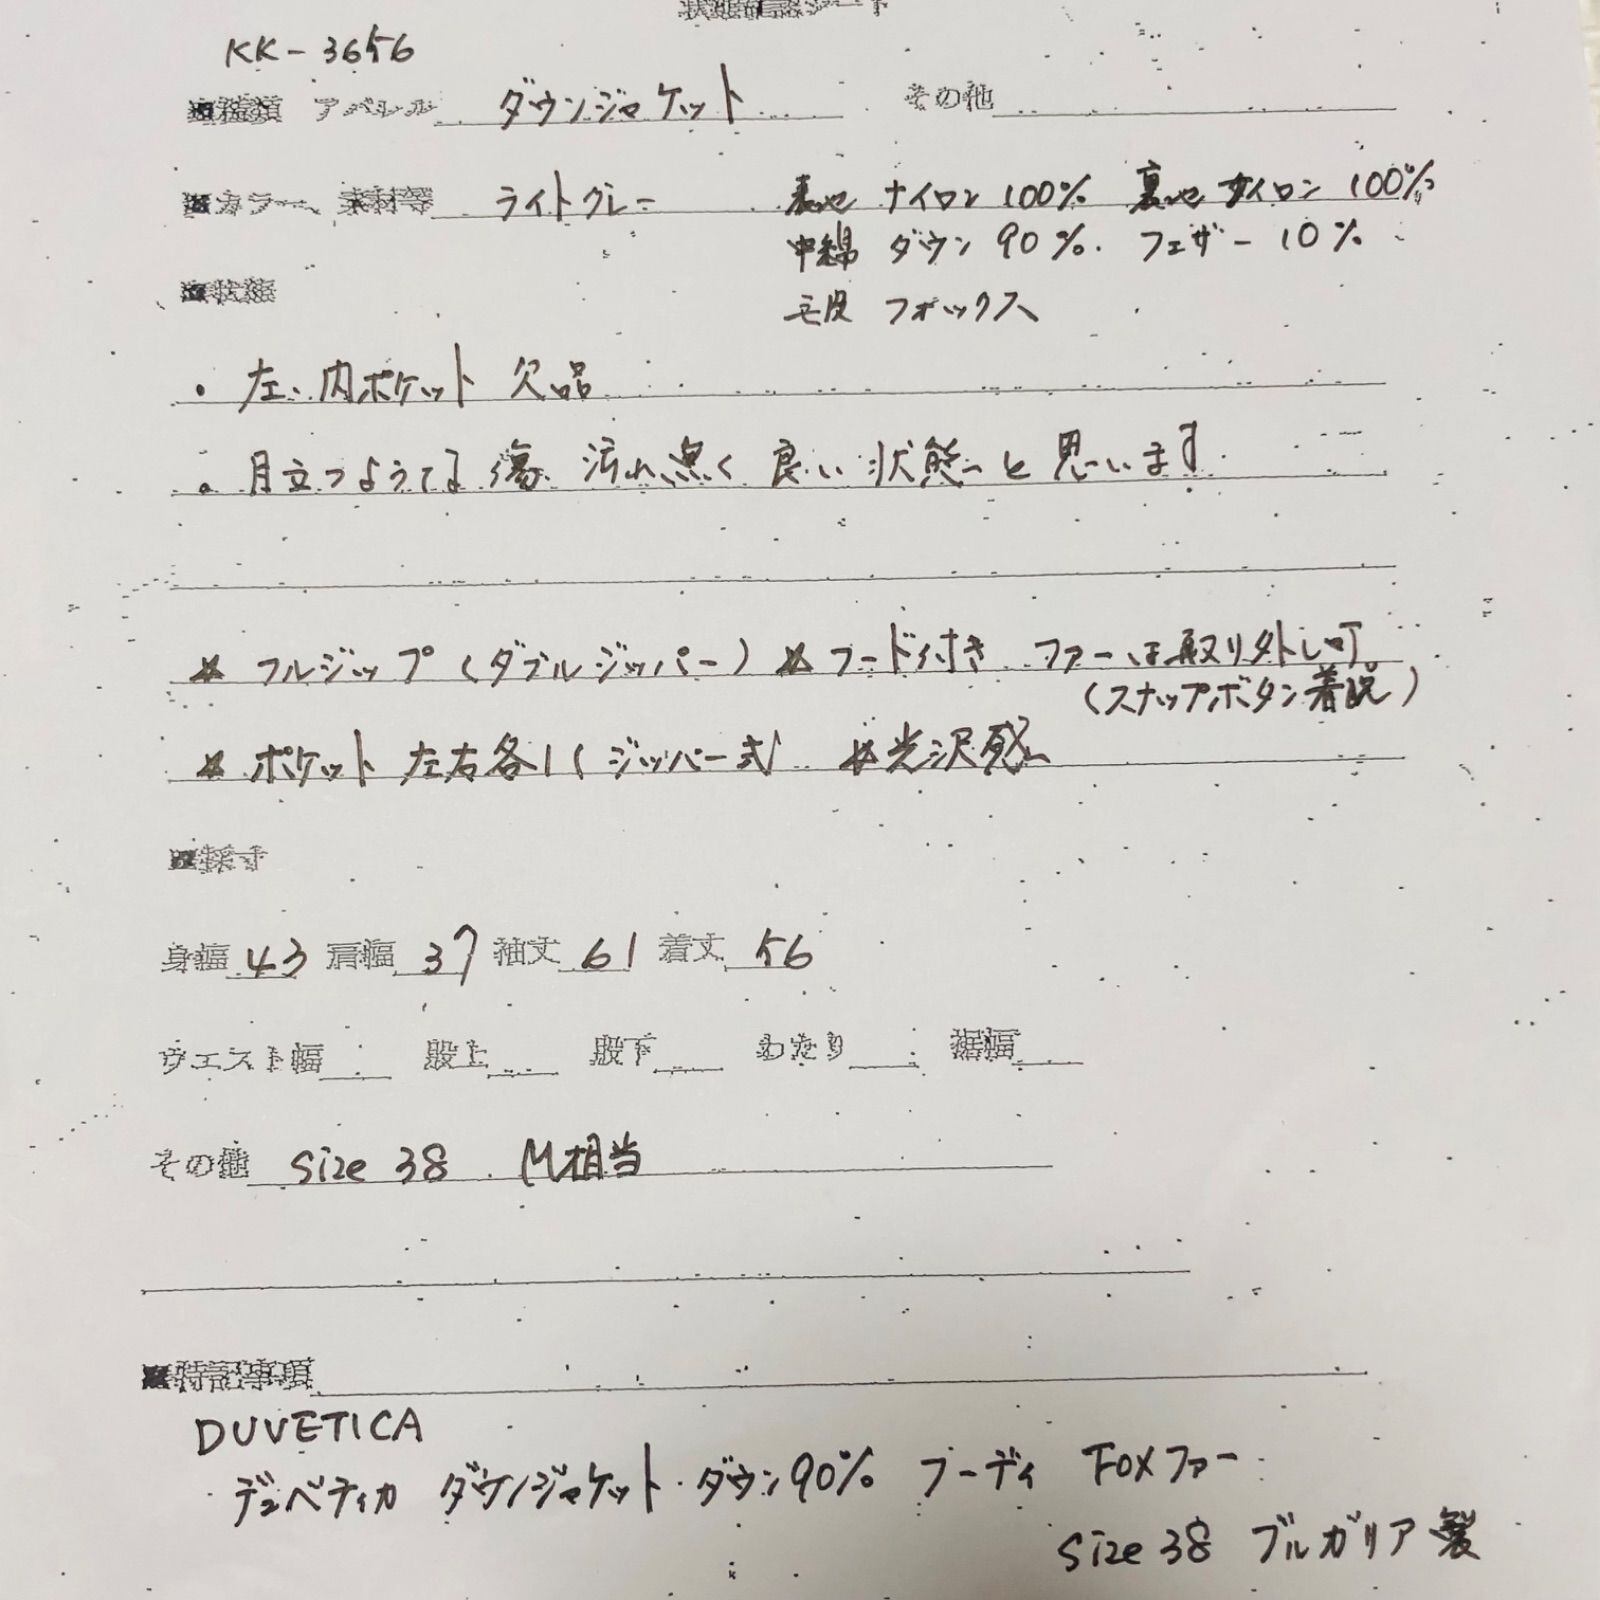 状態確認シート
KK-3656
■種類 アパレル ダウンジャケット その他
■カラー、素材等 ライトグレー 表地 ナイロン 100% 裏地 ナイロン 100%
中綿 ダウン 90%. フェザー 10%
毛皮 フォックス
■状態
・左、内ポケット 欠品
。目立つような傷、汚れ無く 良い状態と思います
* フルジップ (ダブルジッパー) * フード付き ファーは取り外し可
(スナップボタン着脱)
* ポケット 左右各1 (ジッパー式 *光沢感
■採寸
身幅 43 肩幅 37 袖丈 61 着丈 56
ウエスト幅 股上 股下 わたり 裾幅
その他 size 38 M相当
■特記事項
DUVETICA
デュベティカ ダウンジャケット・ダウン90% フーディ FOXファー
size 38 ブルガリア製